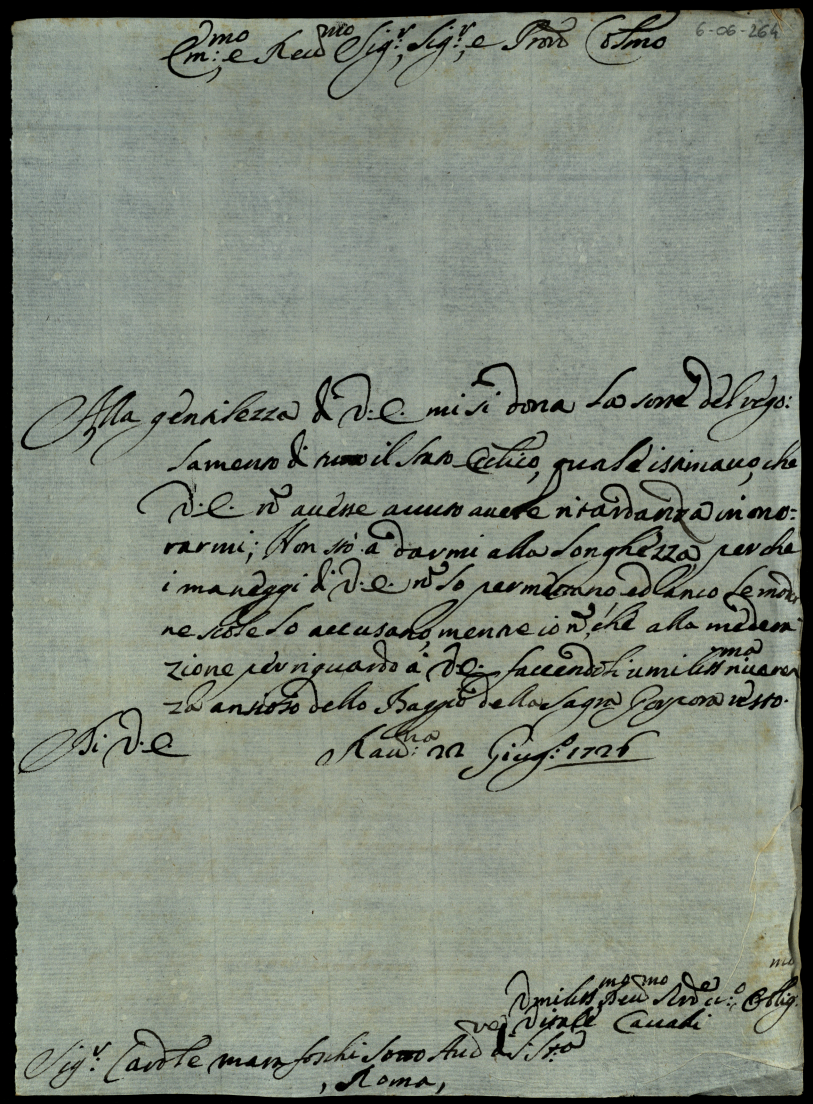 6-06-264
Em:mo e Reu:mo Sig:r, Sig:r, e Prōn Colmo
Alla gentilezza di V.E. mi si dona la sorte del rego:
lamento di tutto il stato Eccl:ico, quale istimauo, che
V.E. nō auesse auuto auere ritardanza in ono:
rarmi; Non stò a darmi alla longhezza, perche
i maneggi di V.E. nō lo permettano, ed anco le
lo accusano, mentre io nō, che alla
zione per riguardo à V.E. facendoli umiliss:ma riueren
za ansioso dello Baggio della Sagra Porpora resto.
Di V.E. Rau:na 22 Giug:o 1726
Vmiliss:mo Deu:mo Oblig:mo
Vitale Cauali
Sig:r Card:le Sotto S.S:tà
, Roma,